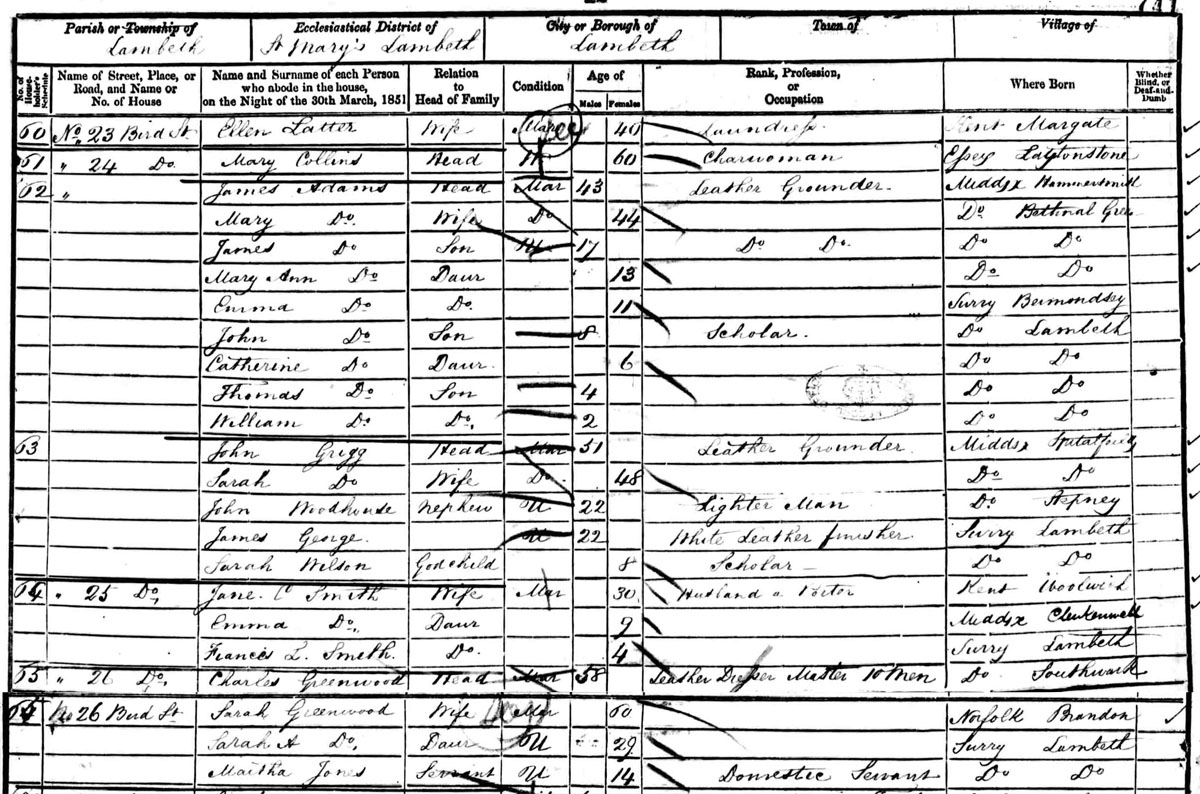 Parish or Township of Ecclesiastical District of City or Borough of Town of Village of
Lambeth St Mary's Lambeth Lambeth
No. of Householder's Schedule Name of Street, Place, or Road, and Name or No. of House Name and Surname of each Person who abode in the house, on the Night of the 30th March, 1851 Relation to Head of Family Condition Age of Males Females Rank, Profession, or Occupation Where Born Whether Blind, or Deaf-and-Dumb
60 No. 23 Bird St Ellen Latter Wife Mar 40 Laundress Kent Margate
61 " 24 Do. Mary Collins Head W 60 Charwoman Essex Laytonstone
62 " James Adams Head Mar 43 Leather Grounder. Middsx Hammersmith
Mary Do. Wife Do 44 Do Bethnal Green
James Do Son U 17 Do Do. Do Do
Mary Ann Do Daur 13 Do Do
Emma Do Do. 11 Surry Bermondsey
John Do Son 8 Scholar. Do Lambeth
Catherine Do Daur. 6 Do Do
Thomas Do Son 4 Do Do
William Do Do. 2 Do Do
63 John Grigg Head Mar 51 Leather Grounder. Middsx
Sarah Do Wife Do 48 Do Do
John Woodhouse Nephew U 22 Lighter Man Do. Stepney
James George. U 22 White Leather finisher. Surry Lambeth
Sarah Wilson Godchild 8 Scholar Do Do
64 " 25 Do, Jane. C Smith Wife Mar 30 Husband a Porter Kent Woolwich
Emma Do, Daur 9 Middsx Clerkenwell
Frances L. Smith Do. 4 Surry Lambeth
65 " 26 Do, Charles Greenwood Head Mar 58 Leather Dresser Master 10 Men Do. Southwark
No 26 Bird St Sarah Greenwood Wife Mar 60 Norfolk Brandon
Sarah A Do, Daur U 29 Surry Lambeth
Martha Jones Servant U 14 Domestic Servant Do Do